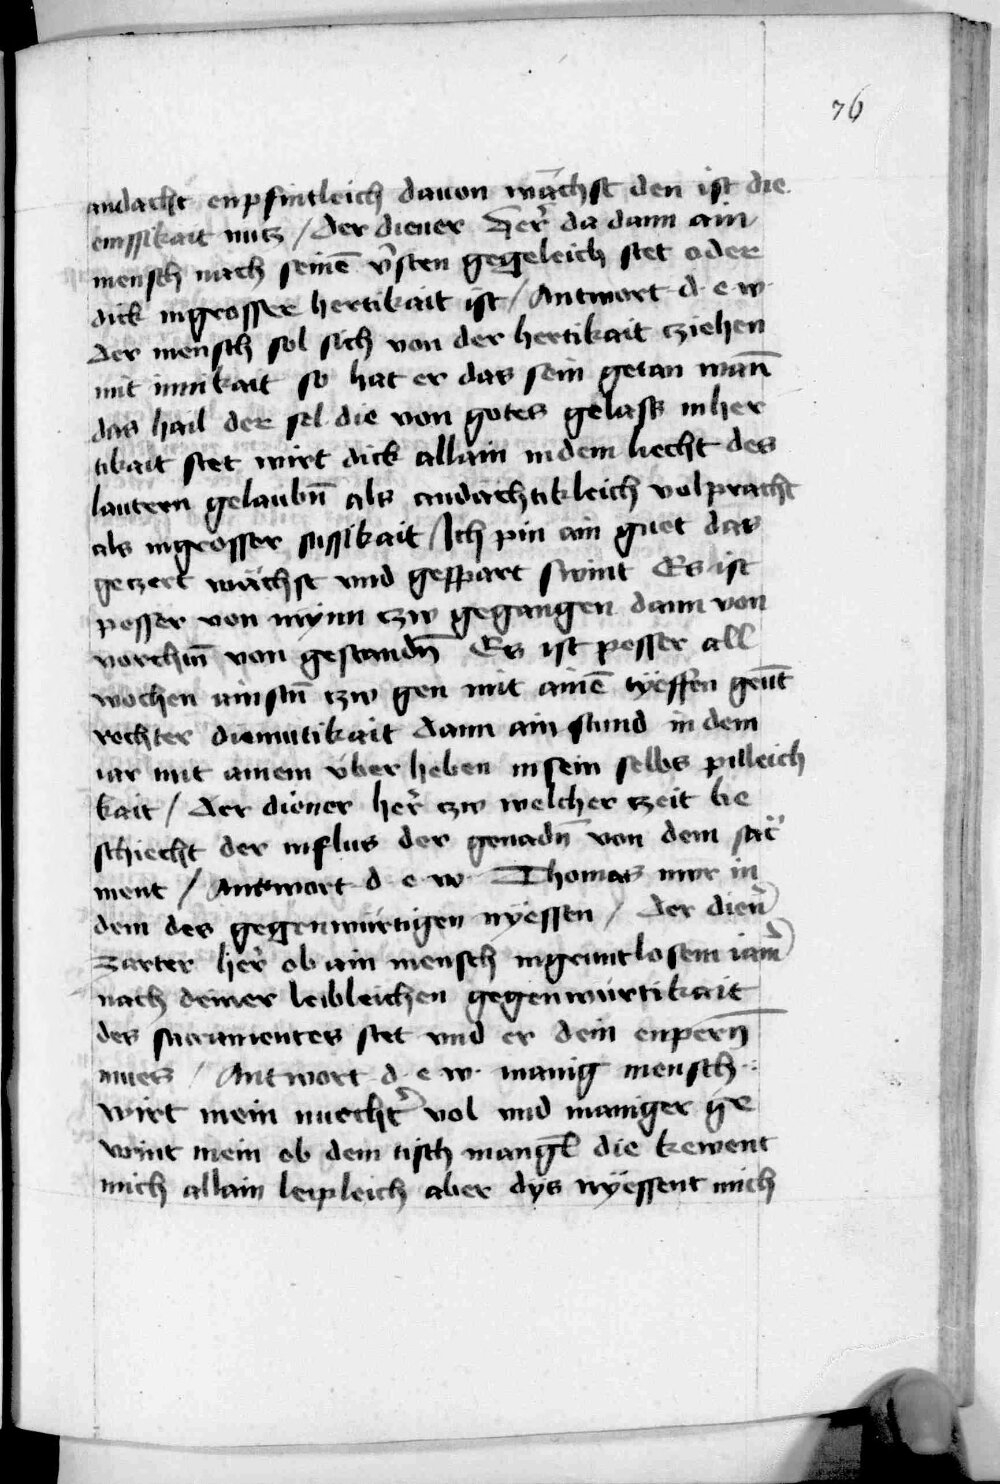 76
andacht enpfintleich dauon wächst den ist die
emssikait nutz / Der diener Her̄ da dann ain
mensch nach seinē v̄sten gegeleich stet oder
dick ingrosser hertikait ist / Antwort d e w
Der mensch sol sich von der hertikait cziehen
mit innikait so hat er das sein getan wann̄
das hail der sel die von gotes gelass inher
tikait stet wirt dick allain indem liecht des
lautern gelaubn̄ als andächtikleich volpracht
als ingrosser sussikait / Ich pin ain guet das
geczert wächst vnd gespart swint Es ist
pesser von mynn czw gegangen dann von
vorchtn̄ von gestandn̄ Es ist pesser all
wochen ainstn̄ czw gen mit ainē tyeffen grūt
rechter diemutikait dann ain stund in dem
iar mit ainem vber heben insein selbs pilleich
kait / Der diener her̄ czw welcher czeit be
schiecht der influs der genadn̄ von dem sac̄
ment / Antwort d e w Thomas nwr in
dem des gegenwürtigen nyessen / Der dien̄
Zarter her̄ ob ain mensch ingruntlosem iam̄
nach deiner leibleichen gegenwürtikait
des sacramentes stet vnd er dein enpern̄
mues / Antwort d e w manig mensch
wirt mein nuecht̄ vol vnd maniger ge
wint mein ob dem tisch mangl̄ die kewent
mich allain leipleich aber dys nyessent mich